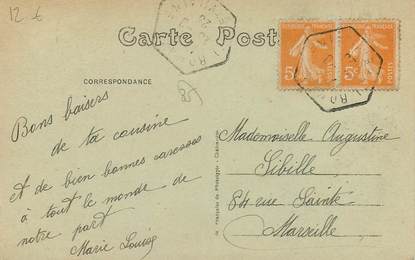 12 €
Carte Post
CORRESPONDANCE
85
Bons baisers
de ta cousine
et de bien bonnes caresses
à tout le monde de
notre part
Marie Louise
5c
POSTES
5c
POSTES
Mademoiselle Augustine
Sibille
84 rue Sainte
Marseille